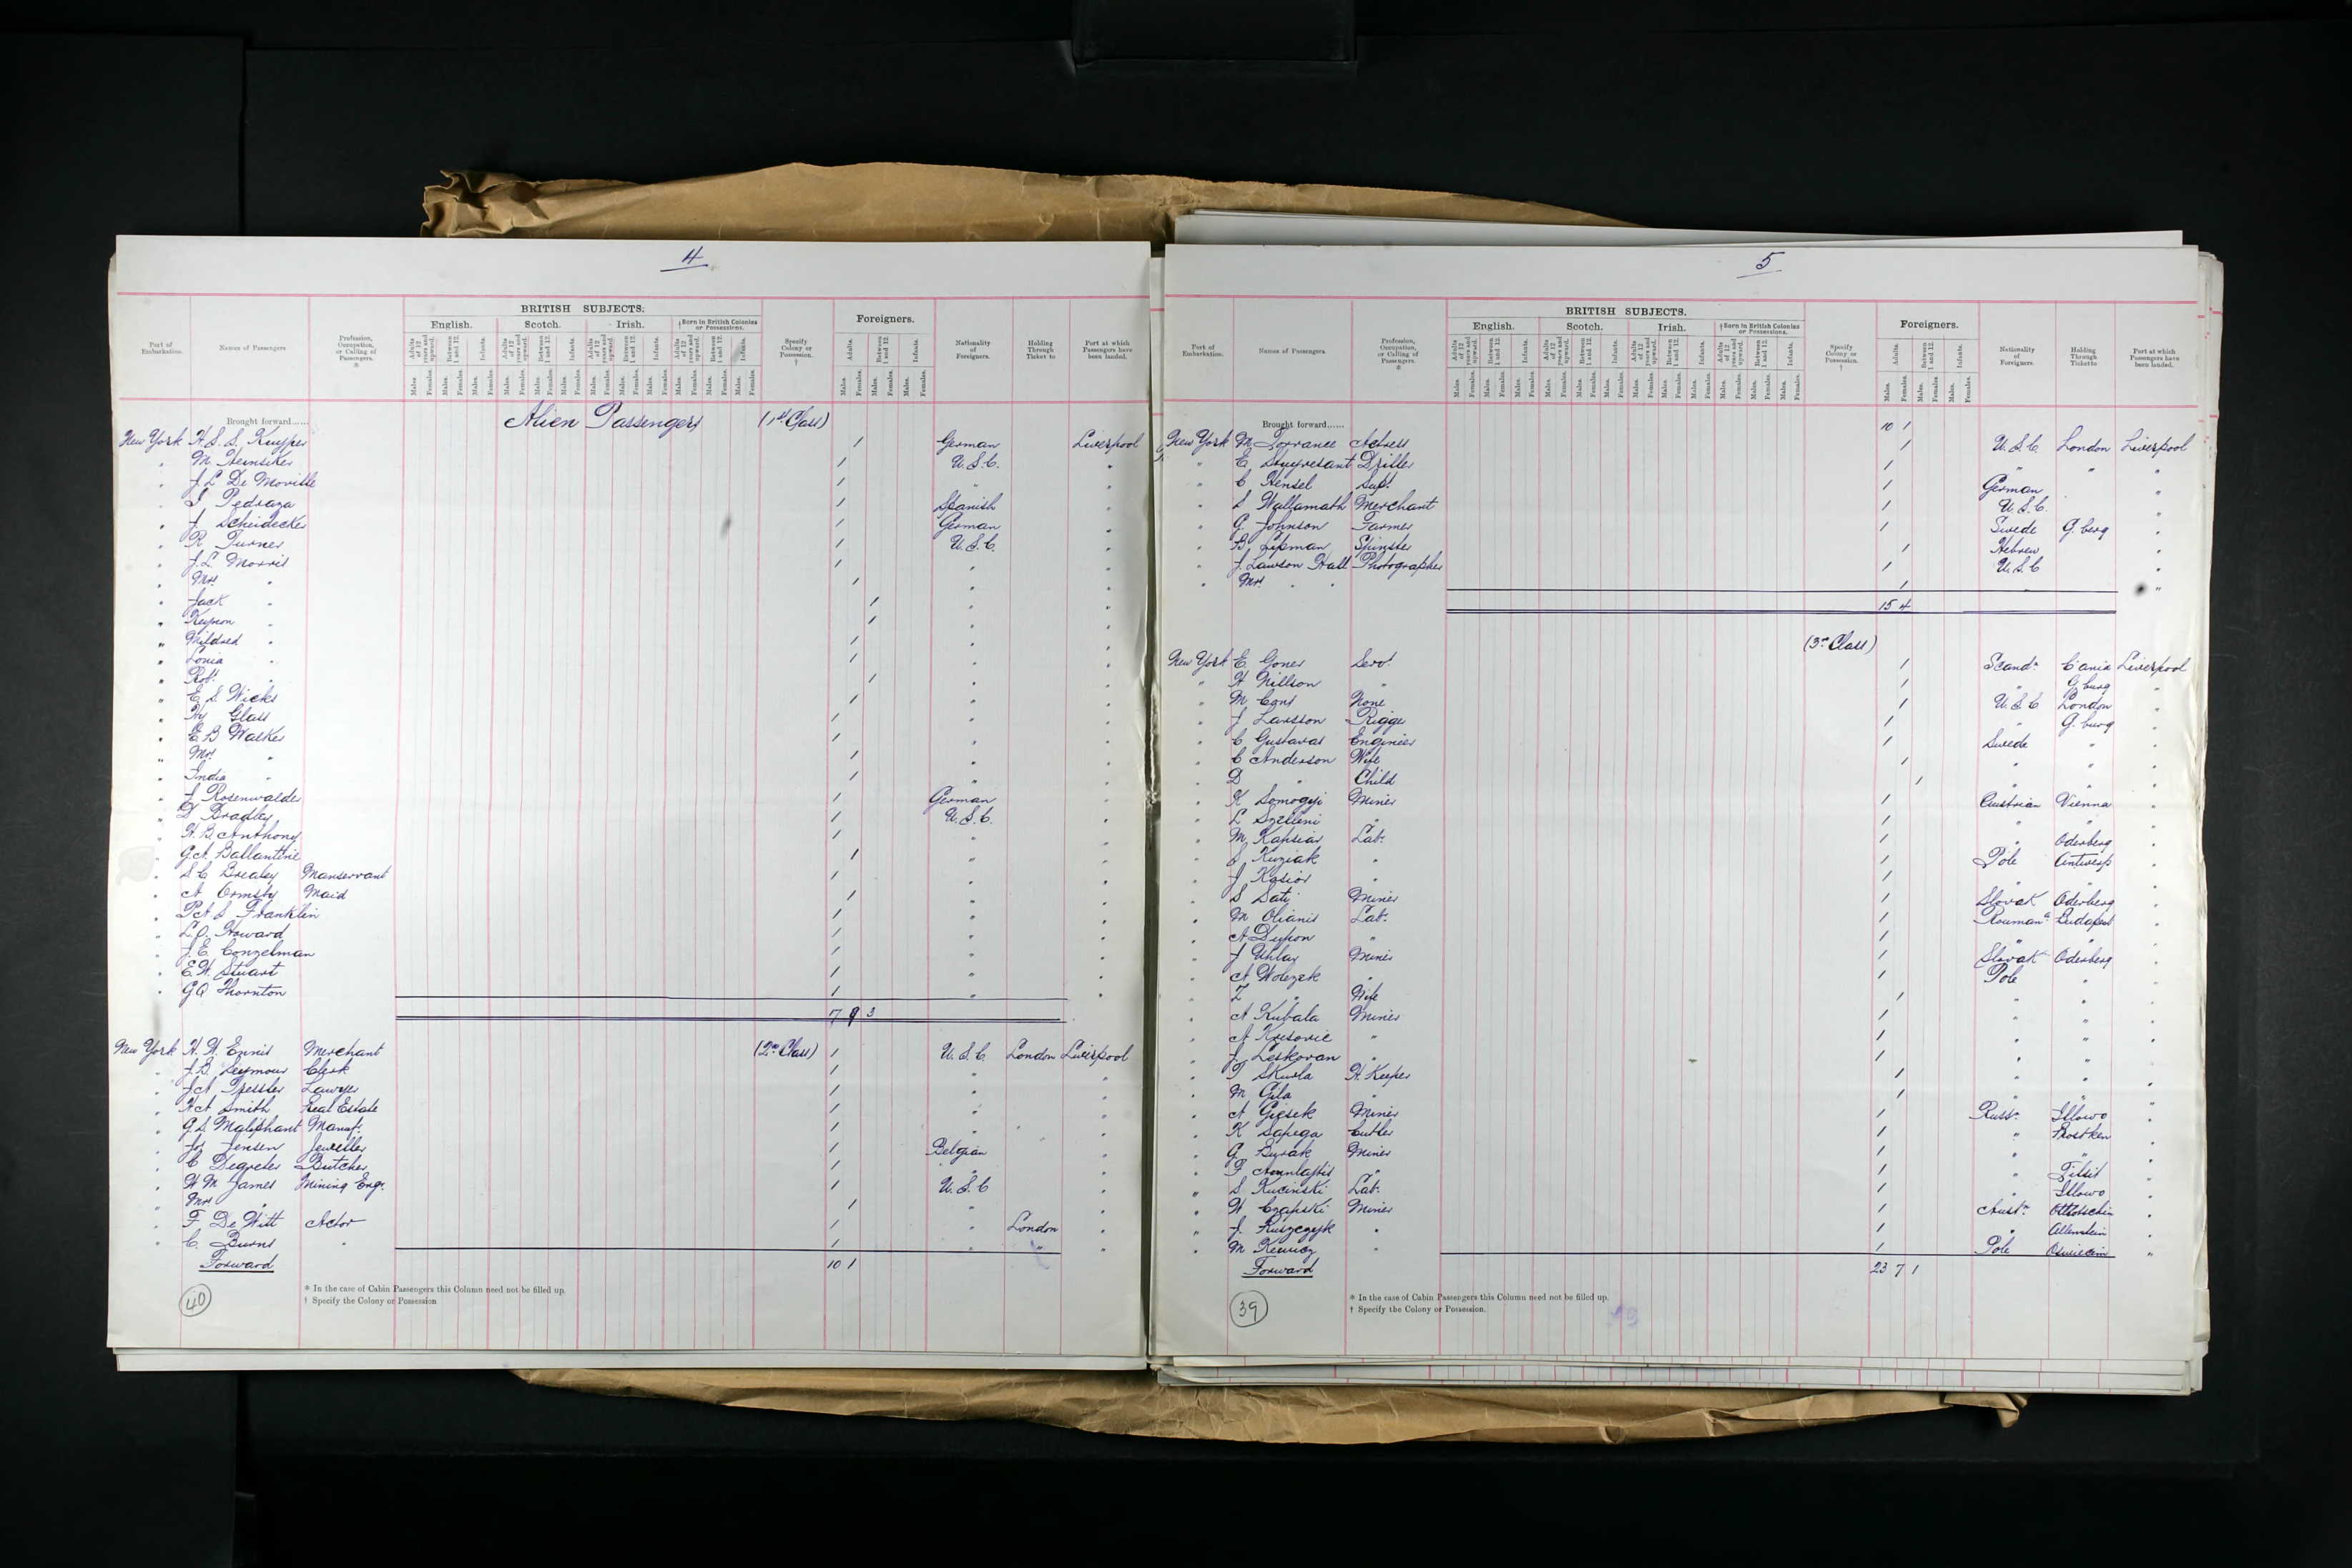 4
BRITISH SUBJECTS:
English. Scotch. Irish. †Born in British Colonies or Possessions. Foreigners.
Port of Embarkation. Names of Passengers Profession, Occupation, or Calling of Passengers. * Specify Colony or Possession. † Nationality of Foreigners. Holding Through Ticket to Port at which Passengers have been landed.
Brought forward...... Alien Passengers (1st Class)
New York H. S. S. Kuyper 1 German Liverpool
" M. Heinsikes 1 U.S.C. "
" J. L. De Moville 1 " "
" Pedraza 1 Spanish "
" J. Scheidecker 1 German "
" R. Turner 1 U.S.C. "
" J. L. Morris 1 " "
" Mrs " 1 " "
" Jack " 1 " "
" " 1 " "
" Mildred " 1 " "
" Lonia " 1 " "
" Robt. " 1 " "
" E. S. Wicks 1 " "
" Hy Glass 1 " "
" E. B. Walker 1 " "
" Mrs " 1 " "
" India " 1 " "
" J. Rosenwalder 1 German "
" D Bradley 1 U.S.C. "
" H. B. Anthony 1 " "
" G. A. Ballantine 1 " "
" S. C. Brealey Manservant 1 " "
" A Ormsby Maid 1 " "
" P. A. S. Franklin 1 " "
" L. O. Howard 1 " "
" J. E. Conzelman 1 " "
" E. H. Stuart 1 " "
" G Q Thornton 1 " "
3
New York H. W. Ennis Merchant (2nd Class) 1 U.S.C. London Liverpool
" J. B. Seymour Clerk 1 " " "
" J A Tressler Lawyer 1 " " "
" H A Smith Real Estate 1 " " "
" G. S. Maliphant Manuf. 1 " " "
" Js Jensen Jeweller 1 " "
" C Degreter Butcher 1 Belgian "
" W M James Mining Engr. 1 U.S.C "
" Mrs " 1 " "
" F De Witt Actor 1 " London "
" C. Burns " 1 " " "
Forward 10 1
* In the case of Cabin Passengers this Column need not be filled up.
† Specify the Colony or Possession
40
5
BRITISH SUBJECTS.
English. Scotch. Irish. †Born in British Colonies or Possessions. Foreigners.
Port of Embarkation. Names of Passengers. Profession, Occupation, or Calling of Passengers. * Specify Colony or Possession. † Nationality of Foreigners. Holding Through Ticket to Port at which Passengers have been landed.
Brought forward...... 10 1
New York M. Torrance Actress 1 U.S.C. London Liverpool
" E. Stuyvesant Driller 1 " " "
" C Hensel Supt. 1 German "
" S Wallamath Merchant 1 U.S.C. "
" G. Johnson Farmer 1 Swede G.berg "
" B Lipman Spinster 1 Hebrew "
" J. Lawson Hall Photographer 1 U.S.C "
" Mrs " " 1 "
15 4
(3rd Class)
New York E. Gones Servt. 1 Scandn C'ania Liverpool
" H Nillson " 1 " G.burg "
" M. Cons None 1 U.S.C London "
" J Larsson Rigger 1 " G.burg "
" C Gustavas Engineer 1 Swede " "
" C Anderson Wife 1 " " "
" D " Child 1 " " "
" K Somogyi Miner 1 Austrian Vienna "
" L Szelleni " 1 " " "
" M. Kapsiar Labr. 1 " Oderberg "
" Kuziak " 1 Pole Antwerp "
" J. Kosior " 1 " " "
" S Sati Miner 1 Slovak Oderberg "
" M Olianis Labr. 1 Rouman Budapest "
" A Dypon " 1 " " "
" J Uhlar Miner 1 Slovak Oderberg "
" A Wolezek " 1 Pole " "
" Z " Wife 1 " " "
" A Kubala Miner 1 " " "
" A Kresovic " 1 " " "
" J. Leskovan " 1 " " "
" T Skurla H. Keeper 1 " " "
" M Gila " 1 " " "
" A Giesek Miner 1 Russn Illowo "
" K Sapega Cutler 1 " Prostken "
" G. Burak Miner 1 " " "
" " 1 " Tilsit "
" S. Kucinski Labr. 1 " Illowo "
" W Czapski Miner 1 Austn Ottlotschin "
" J. Ruszczyk " 1 " Allenstein "
" M " 1 Pole Oswiecim "
Forward 23 7 1
* In the case of Cabin Passengers this Column need not be filled up.
† Specify the Colony or Possession.
39